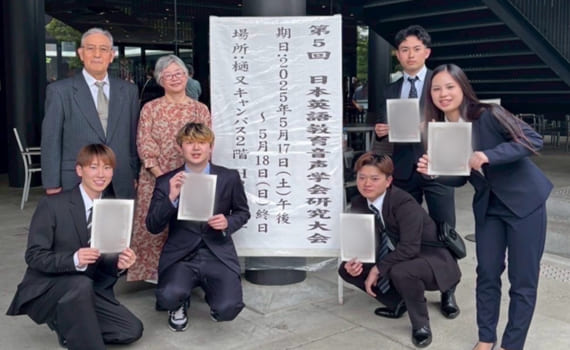 第5回 日本英語教育音声学会研究大会
期日:2025年5月17日(土)午後
～5月18日(日)終日
場所:樋又キャンパス2階 H